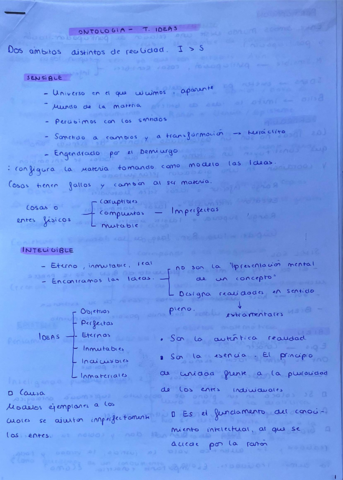 ONTOLOGIA - T. IDEAS
Dos ambitos distintos de realidad. I > S
SENSIBLE
- Universo en el que vivimos, aparente
- Mundo de la materia
- Percibimos con los sentidos
- Sometido a cambios y a transformación → Heráclito
- Engendrado por el Demiurgo
: configura la materia tomando como modelo las Ideas
Cosas tienen fallos y cambian al ser materia.
Cosas o entes físicos
- corruptas
- compuestas - Imperfectas
- mutable
INTELIGIBLE
- Eterno, inmutable, real
- Encontramos las Ideas
- no son la "representación mental de un concepto"
- Designa realidades en sentido pleno.
↓
extramentales
IDEAS
- Objetivas
- Perfectas
- Eternas
- Inmutables
- Indivisibles
- Inmateriales
• Son la auténtica realidad
• Son la esencia. El principio
de unidad frente a la pluralidad
de los entes individuales.
Causa
Modelos ejemplares a los
cuales se ajustan imperfectamente
los entes.
Es el fundamento del conoci-
miento intelectual, al que se
accede por la razón